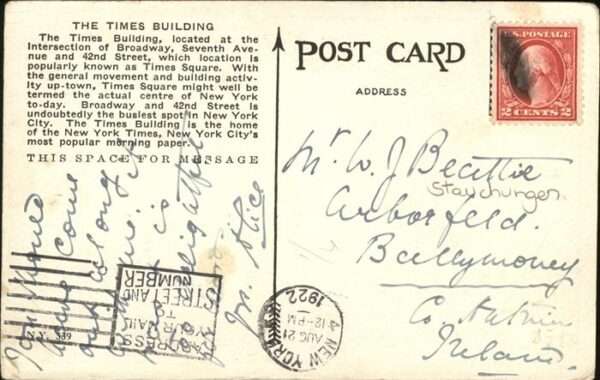 THE TIMES BUILDING
The Times Building, located at the
Intersection of Broadway, Seventh Ave-
nue and 42nd Street, which location is
popularly known as Times Square. With
the general movement and building activ-
ity up-town, Times Square might well be
termed the actual centre of New York
to-day. Broadway and 42nd Street is
undoubtedly the busiest spot in New York
City. The Times Building is the home
of the New York Times, New York City's
most popular morning paper.
THIS SPACE FOR MESSAGE
You should
have come
out along
it is
delightful
POST CARD
ADDRESS
U.S. POSTAGE
2 CENTS 2
Mr W. J. Beattie
Arborfeld.
Ballymoney
Co. Antrim
Ireland
NEW YORK
AUG 21
4 12-PM
1922
ADDRESS
YOUR MAIL
TO
STREET AND
NUMBER